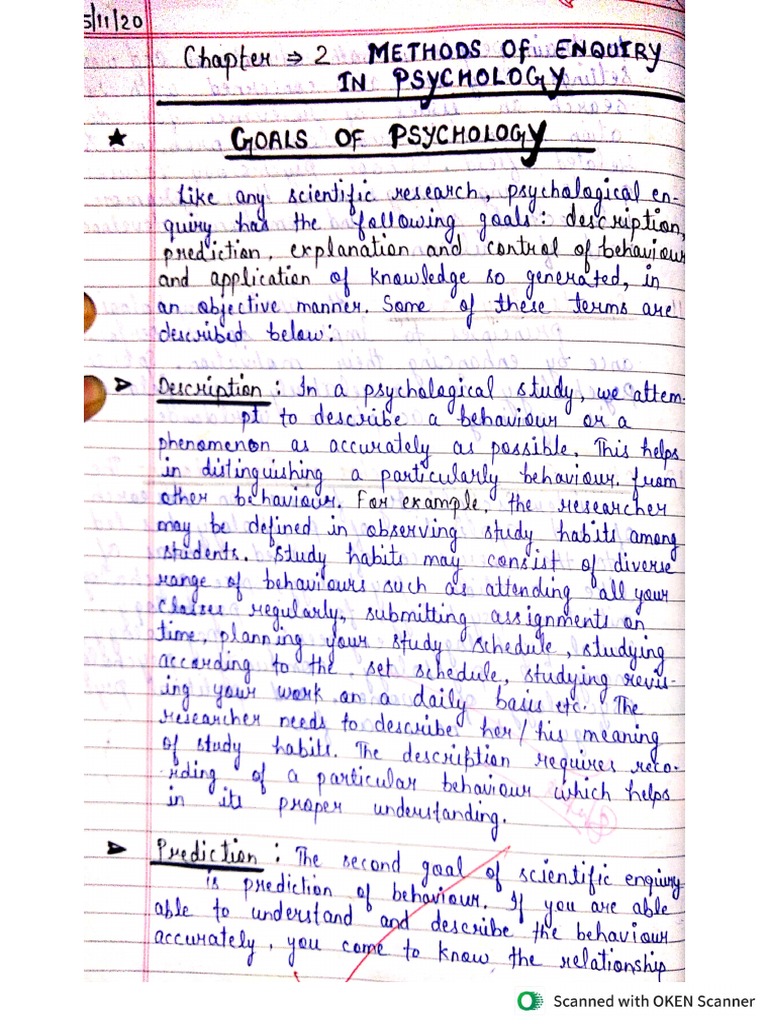 5/11/20
Chapter ⇒ 2 METHODS OF ENQUIRY
IN PSYCHOLOGY
★ GOALS OF PSYCHOLOGY
Like any scientific research, psychological en-
quiry has the following goals: description,
prediction, explanation and control of behaviour
and application of knowledge so generated, in
an objective manner. Some of these terms are
described below:
➤ Description : In a psychological study, we attem-
pt to describe a behaviour or a
phenomenon as accurately as possible. This helps
in distinguishing a particularly behaviour from
other behaviour. For example, the researcher
may be defined in observing study habits among
students. Study habits may consist of diverse
range of behaviours such as attending all your
classes regularly, submitting assignments on
time, planning your study schedule, studying
according to the set schedule, studying revis-
ing your work on a daily basis etc. The
researcher needs to describe her/his meaning
of study habits. The description requires reco-
rding of a particular behaviour which helps
in its proper understanding.
➤ Prediction : The second goal of scientific enquiry
is prediction of behaviour. If you are able
able to understand and describe the behaviour
accurately, you come to know the relationship
Scanned with OKEN Scanner